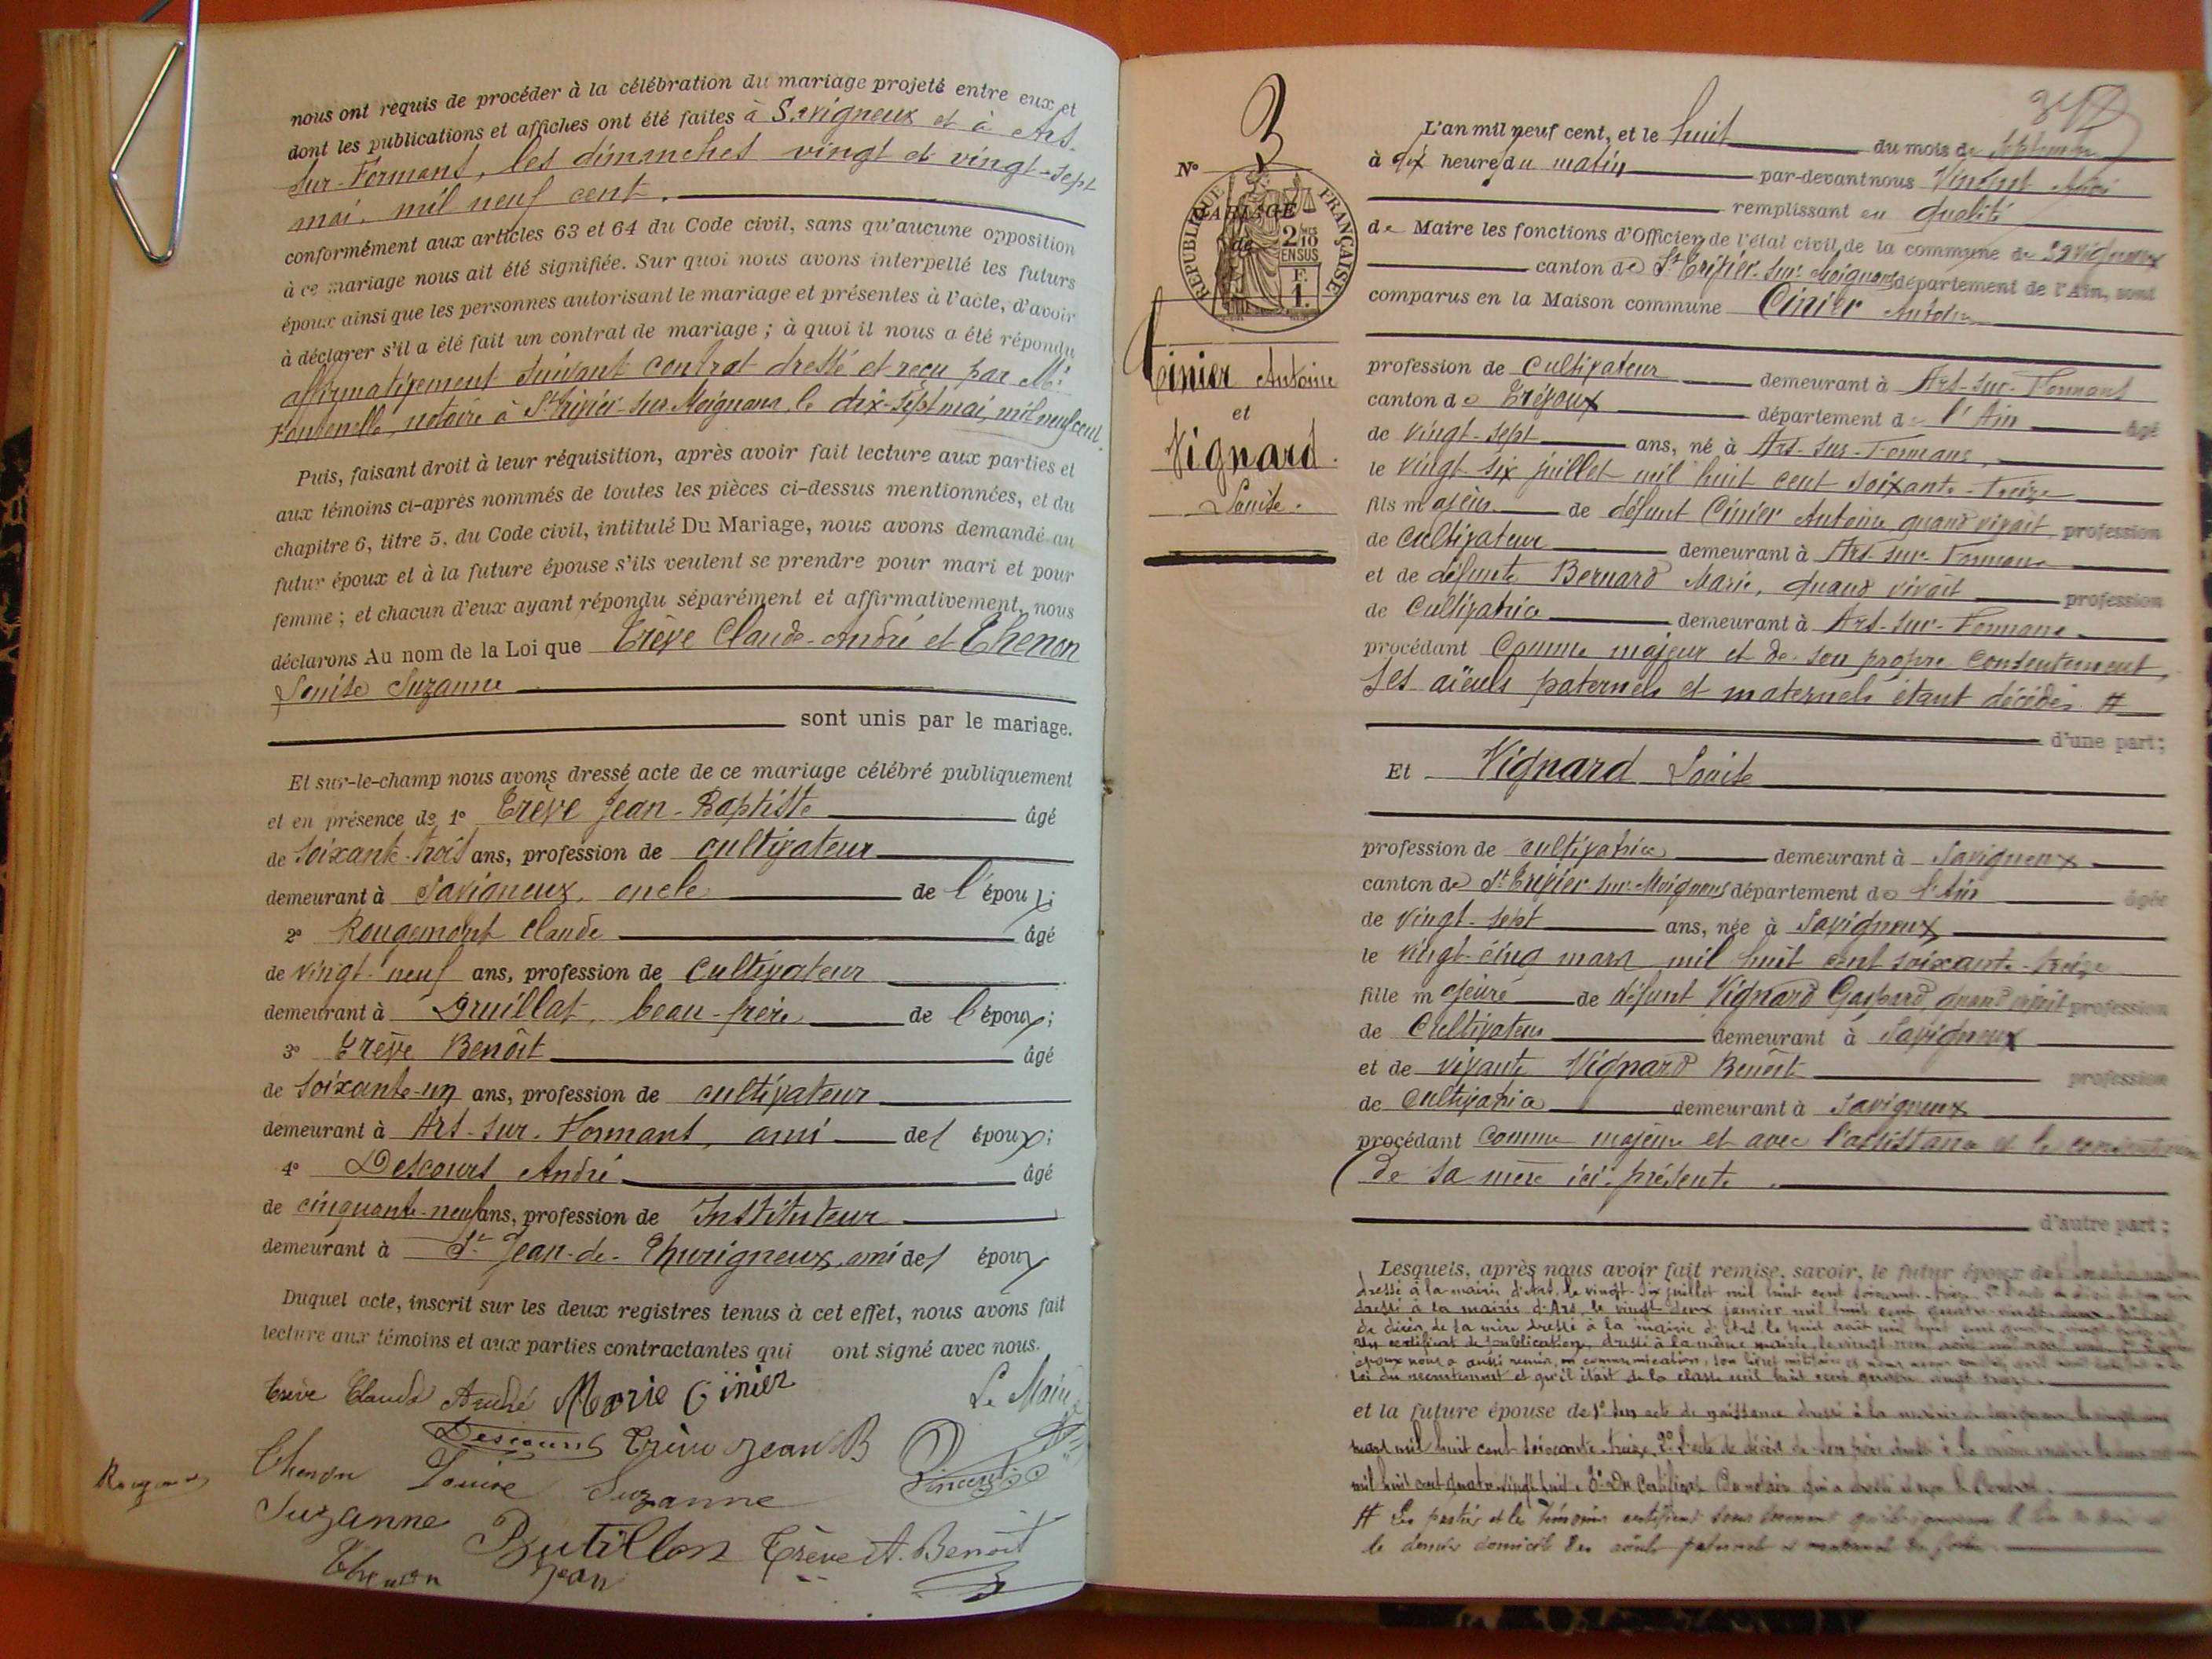 nous ont requis de procéder à la célébration du mariage projeté entre eux et
dont les publications et affiches ont été faites à Savigneux et à Ars-
sur-Formans, les dimanches vingt et vingt-sept
mai, mil neuf cent.
conformément aux articles 63 et 64 du Code civil, sans qu'aucune opposition
à ce mariage nous ait été signifiée. Sur quoi nous avons interpellé les futurs
époux ainsi que les personnes autorisant le mariage et présentes à l'acte, d'avoir
à déclarer s'il a été fait un contrat de mariage ; à quoi il nous a été répondu
affirmativement suivant contrat dressé et reçu par Me
Fontenelle, notaire à St Trivier-sur-Moignans, le dix-sept mai, mil neuf cent.
Puis, faisant droit à leur réquisition, après avoir fait lecture aux parties et
aux témoins ci-après nommés de toutes les pièces ci-dessus mentionnées, et du
chapitre 6, titre 5, du Code civil, intitulé Du Mariage, nous avons demandé au
futur époux et à la future épouse s'ils veulent se prendre pour mari et pour
femme ; et chacun d'eux ayant répondu séparément et affirmativement, nous
déclarons Au nom de la Loi que Trève Claude-André et Thenon
Louise Suzanne
sont unis par le mariage.
Et sur-le-champ nous avons dressé acte de ce mariage célébré publiquement
et en présence de 1° Trève Jean-Baptiste âgé
de soixante-trois ans, profession de cultivateur
demeurant à Savigneux, oncle de l'époux;
2° Rougemont Claude âgé
de vingt-neuf ans, profession de cultivateur
demeurant à Druillat, beau-frère de l'époux;
3° Trève Benoît âgé
de soixante-un ans, profession de cultivateur
demeurant à Ars-sur-Formans, ami des époux;
4° Descours André âgé
de cinquante-neuf ans, profession de Instituteur
demeurant à St Jean-de-Thurigneux, ami des époux
Duquel acte, inscrit sur les deux registres tenus à cet effet, nous avons fait
lecture aux témoins et aux parties contractantes qui ont signé avec nous.
Trève Claude André Marie Cinier Le Maire
Descours Trève Jean B
Thenon Louise Suzanne Vincent
Suzanne Butillon Trève A. Benoît
Thenon Jean
L'an mil neuf cent, et le huit du mois de Septembre
à dix heure du matin par-devant nous Vincent
remplissant en qualité
de Maire les fonctions d'Officier de l'état civil de la commune de Savigneux
canton de St Trivier-sur-Moignans département de l'Ain, sont
comparus en la Maison commune Cinier Antoine
N° 3
MARIAGE
de
RÉPUBLIQUE FRANÇAISE
2/10 EN SUS
F. 1.
Cinier Antoine
et
Vignard
Louise.
profession de cultivateur demeurant à Ars-sur-Formans
canton de Trévoux département de l'Ain âgé
de vingt-sept ans, né à Ars-sur-Formans,
le vingt-six juillet mil huit cent soixante-treize
fils majeur de défunt Cinier Antoine quand vivait profession
de cultivateur demeurant à Ars-sur-Formans
et de défunte Bernard Marie, quand vivait profession
de cultivatrice demeurant à Ars-sur-Formans
procédant comme majeur et de son propre consentement,
ses aïeuls paternels et maternels étant décédés #
d'une part ;
Et Vignard Louise
profession de cultivatrice demeurant à Savigneux
canton de St Trivier-sur-Moignans département de l'Ain âgée
de vingt-sept ans, née à Savigneux
le vingt-cinq mars mil huit cent soixante-treize
fille majeure de défunt Vignard Gaspard, quand vivait profession
de cultivateur demeurant à Savigneux
et de vivante Vignard Benoîte profession
de cultivatrice demeurant à Savigneux
procédant comme majeure et avec l'assistance et le consentement
de sa mère ici présente.
d'autre part ;
Lesquels, après nous avoir fait remise, savoir, le futur époux de
dressé à la mairie d'Ars, le vingt-six juillet mil huit cent soixante-treize
dressé à la mairie d'Ars, le vingt-deux janvier mil huit cent quatre-vingt
de décès de sa mère dressé à la mairie d'Ars, le huit août mil huit cent
un certificat de publication, dressé à la même mairie, le
époux nous a aussi remis, en communication, son livret militaire et nous avons
loi du recrutement et qu'il était de la classe mil huit cent quatre vingt treize.
et la future épouse de 1° son acte de naissance dressé à la mairie de Savigneux le vingt-cinq
mars mil huit cent soixante treize, 2° l'acte de décès de son père dressé à la même mairie
mil huit cent quatre vingt huit, 3° Un certificat du notaire qui a dressé et reçu le contrat.
# Les parties et les témoins certifient sous serment qu'ils ignorent le lieu
le dernier domicile des aïeuls paternels et maternels du futur